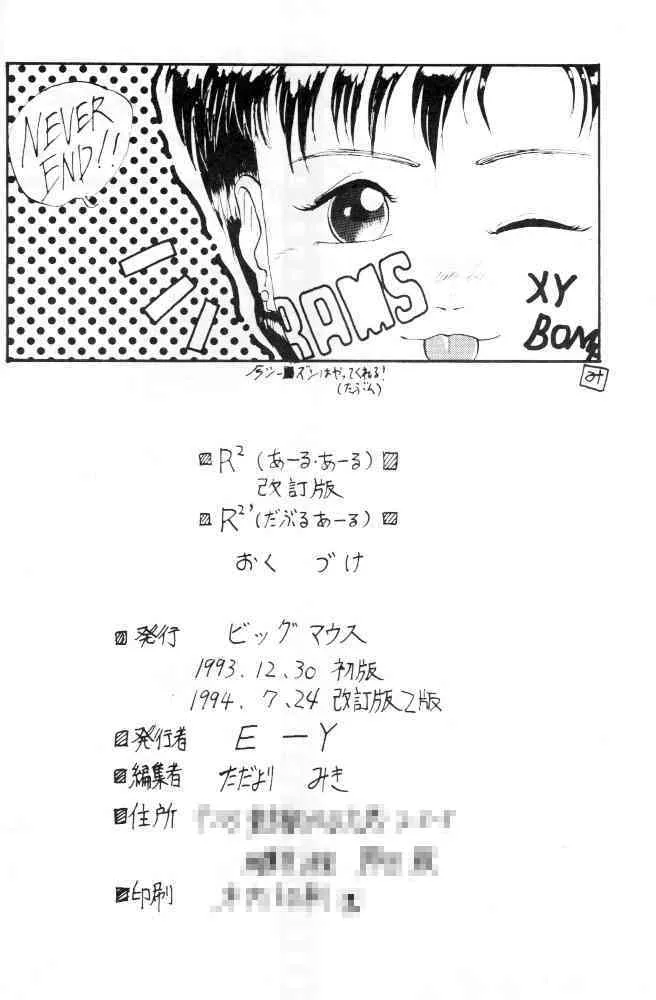 NEVER
END!!
RAMS
XY
BOM
ズンはやってくれる!
(たぶん)
み
R² (あーる・あーる)
改訂版
R²'(だぶるあーる)
おくづけ
発行 ビッグマウス
1993.12.30 初版
1994.7.24 改訂版2版
発行者 E－Y
編集者 ただより みき
住所
印刷